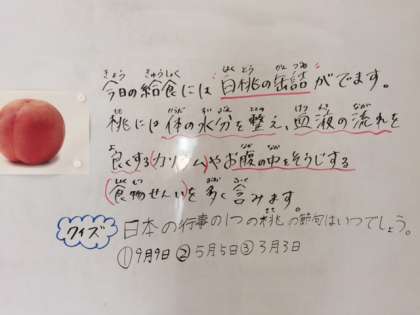 今日の給食には“白桃の缶詰”がでます。
桃には体の水分を整え、血液の流れを
良くする(カリウム)やお腹の中をそうじする
(食物せんい)を多く含みます。
クイズ 日本の行事の1つの桃の節句はいつでしょう。
①9月9日 ②5月5日 ③3月3日